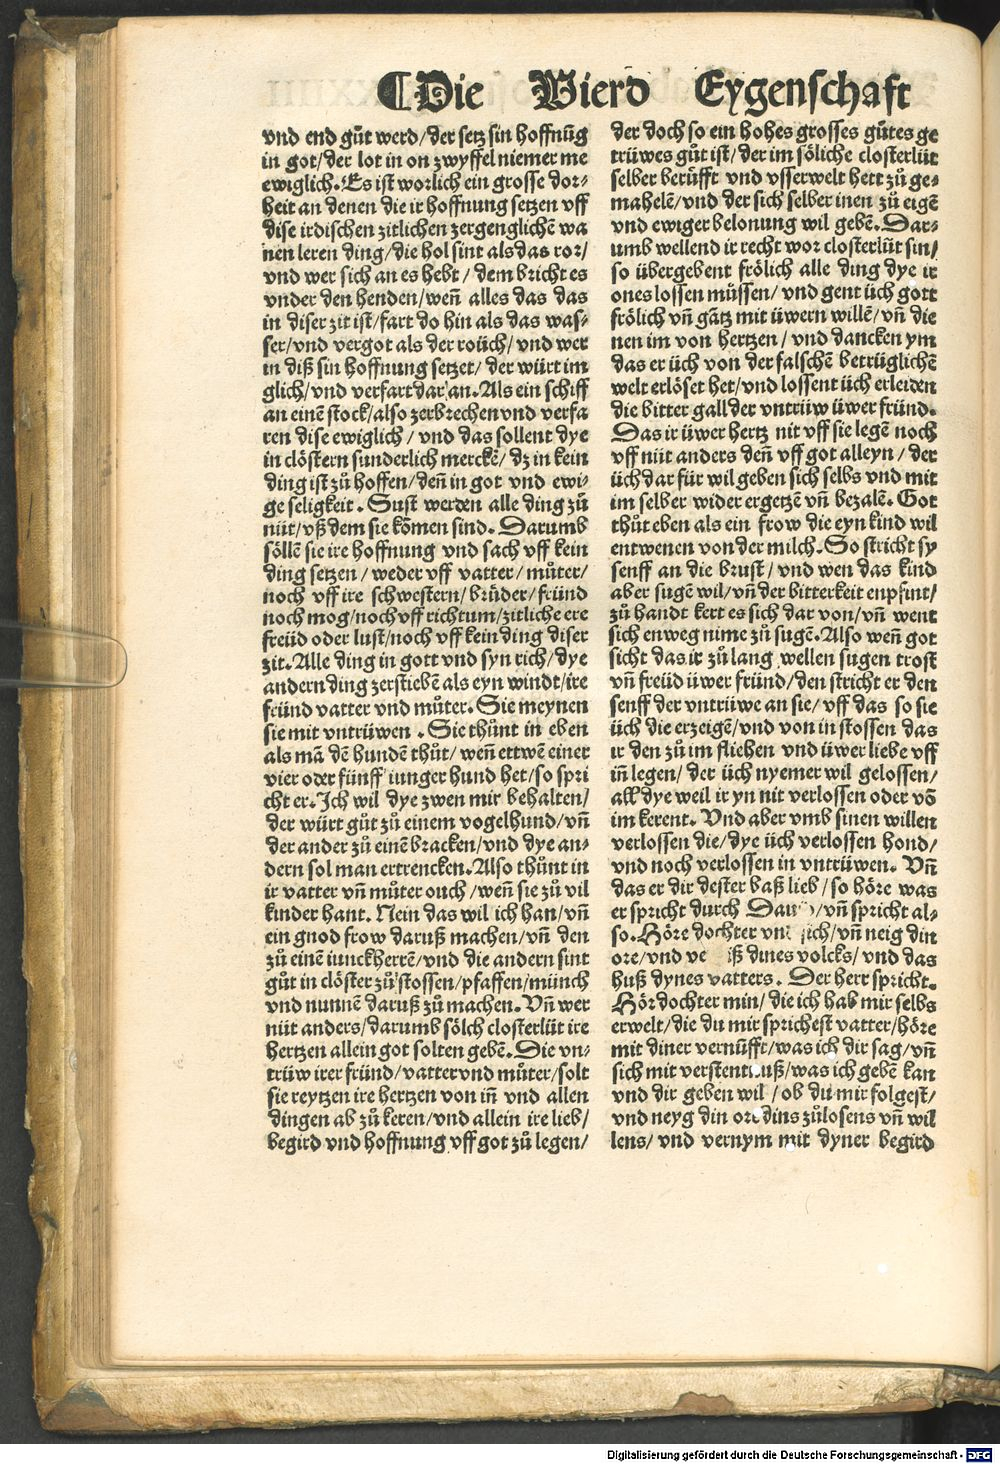 ¶Die Vierd Eygenschaft
vnd end gůt werd/der setz sin hoffnũg
in got/der lot in on zwyffel niemer me
ewiglich. Es ist worlich ein grosse dor⸗
heit an denen die ir hoffnung setzen vff
dise irdischen zitlichen zergenglichẽ wa
nen leren ding/die hol sint als das ror/
vnd wer sich an es hebt/ dem bricht es
vnder den henden/weñ alles das das
in diser zit ist/fart do hin als das was⸗
ser/vnd vergot als der roůch/ vnd wer
in diß sin hoffnung setzet/ der würt im
glich/vnd verfart dar an. Als ein schiff
an einẽ stock/also zerbrechen vnd verfa
ren dise ewiglich/ vnd das sollent dye
in clöstern sunderlich merckẽ/ dz in kein
ding ist zů hoffen/ deñ in got vnd ewi⸗
ge seligkeit. Sust werden alle ding zů
nüt/vß dem sie kõmen sind. Darumb
söllẽ sie ire hoffnung vnd sach vff kein
ding setzen/ weder vff vatter/ můter/
noch vff ire schwestern/ brüder/ fründ
noch mog/noch vff richtum/zitliche ere
freüd oder lust/noch vff kein ding diser
zit. Alle ding in gott vnd syn rich/dye
andern ding zerstiebẽ als eyn windt/ire
fründ vatter vnd můter. Sie meynen
sie mit vntrüwen. Sie thůnt in eben
als mã dẽ hundẽ thůt/ weñ ettwẽ einer
vier oder fünff iunger hund het/so spri
cht er. Ich wil dye zwen mir behalten/
der würt gůt zů einem vogelhund/vñ
der ander zů einẽ bracken/vnd dye an⸗
dern sol man ertrencken. Also thůnt in
ir vatter vñ můter ouch/weñ sie zů vil
kinder hant. Nein das wil ich han/vñ
ein gnod frow daruß machen/vñ den
zů einẽ iunckherrẽ/vnd die andern sint
gůt in clöster zů stossen/pfaffen/münch
vnd nunnẽ daruß zů machen. Vñ wer
nüt anders/darumb sölch closterlüt ire
hertzen allein got solten gebẽ. Die vn⸗
trüw irer fründ/vatter vnd můter/solt
sie reytzen ire hertzen von iñ vnd allen
dingen ab zů keren/vnd allein ire lieb/
begird vnd hoffnung vff got zů legen/
der doch so ein hohes grosses gůtes ge
trüwes gůt ist/der im söliche closterlüt
selber berůfft vnd vsserwelt hett zů ge⸗
mahelẽ/vnd der sich selber inen zů eigẽ
vnd ewiger belonung wil gebẽ. Dar⸗
umb wellend ir recht wor closterlüt sin/
so übergebent frölich alle ding dye ir
ones lossen müssen/ vnd gent üch gott
frölich vñ gãtz mit üwern willẽ/vñ die
nen im von hertzen/ vnd dancken ym
das er üch von der falschẽ betrüglichẽ
welt erlöset het/vnd lossent üch erleiden
die bitter gall der vntrüw üwer fründ.
Das ir üwer hertz nit vff sie legẽ noch
vff nüt anders deñ vff got alleyn/ der
üch dar für wil geben sich selbs vnd mit
im selber wider ergetzẽ vñ bezalẽ. Got
thůt eben als ein frow die eyn kind wil
entwenen von der milch. So stricht sy
senff an die brust/ vnd wen das kind
aber sugẽ wil/vñ der bitterkeit enpfint/
zů handt kert es sich dar von/vñ went
sich enweg nime zů sugẽ. Also weñ got
sicht das ir zů lang wellen sugen trost
vñ freüd üwer fründ/den stricht er den
senff der vntrüwe an sie/ vff das so sie
üch die erzeigẽ/vnd von in stossen das
ir den zů im fliehen vnd üwer liebe vff
iñ legen/ der üch nyemer wil gelossen/
all dye weil ir yn nit verlossen oder võ
im kerent. Vnd aber vmb sinen willen
verlossen die/dye üch verlossen hond/
vnd noch verlossen in vntrüwen. Vñ
das er dir dester baß lieb/so höre was
er spricht durch Dau /vñ spricht al⸗
so. Höre dochter vn sich/vñ neig din
ore/vnd ve iß dines volcks/vnd das
huß dynes vatters. Der herr spricht.
Hör dochter min/ die ich hab mir selbs
erwelt/die du mir sprichest vatter/höre
mit diner vernüfft/was ich dir sag/vñ
sich mit verstent uß/was ich gebẽ kan
vnd dir geben wil/ ob du mir folgest/
vnd neyg din ore dins zůlosens vñ wil
lens/ vnd vernym mit dyner begird
Digitalisierung gefördert durch die Deutsche Forschungsgemeinschaft - DFG